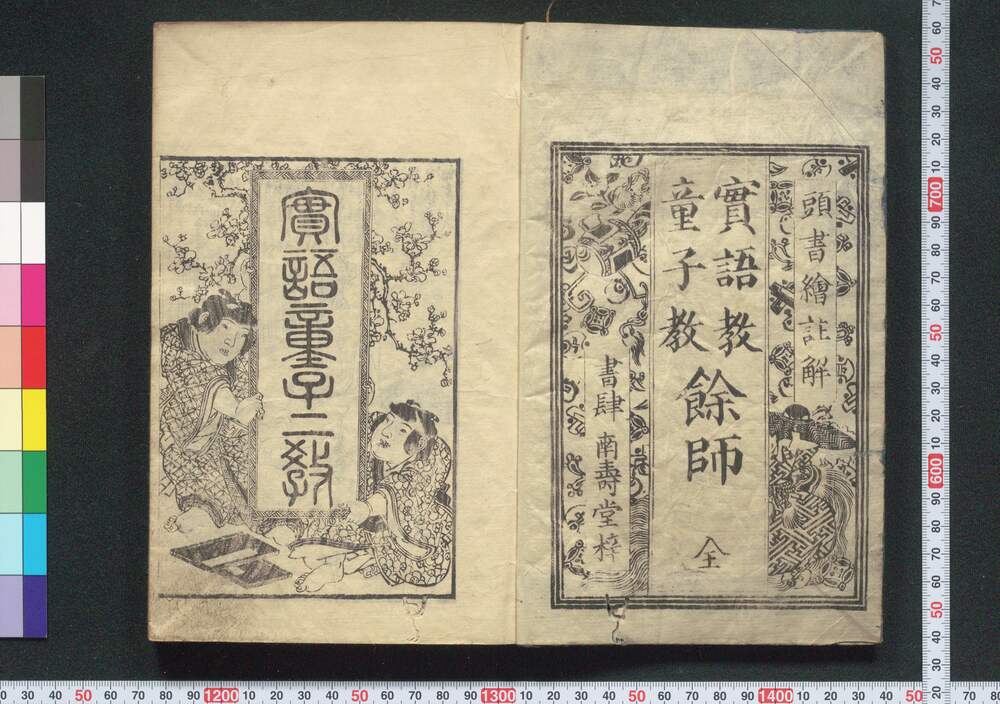 頭書繪註解
實語教
童子教
餘師
全
書肆 南壽堂梓
實語童子二教
0 30 40 50 60 70 80 90 1200 10 20 30 40 50 60 70 80 90 1300 10 20 30 40 50 60 70 80 90 1400 10 20 30 40 50 70 80
60 50 40 30 20 10 700 90 80 70 60 50 40 30 20 10 600 90 80 70 60 50 40 30 20